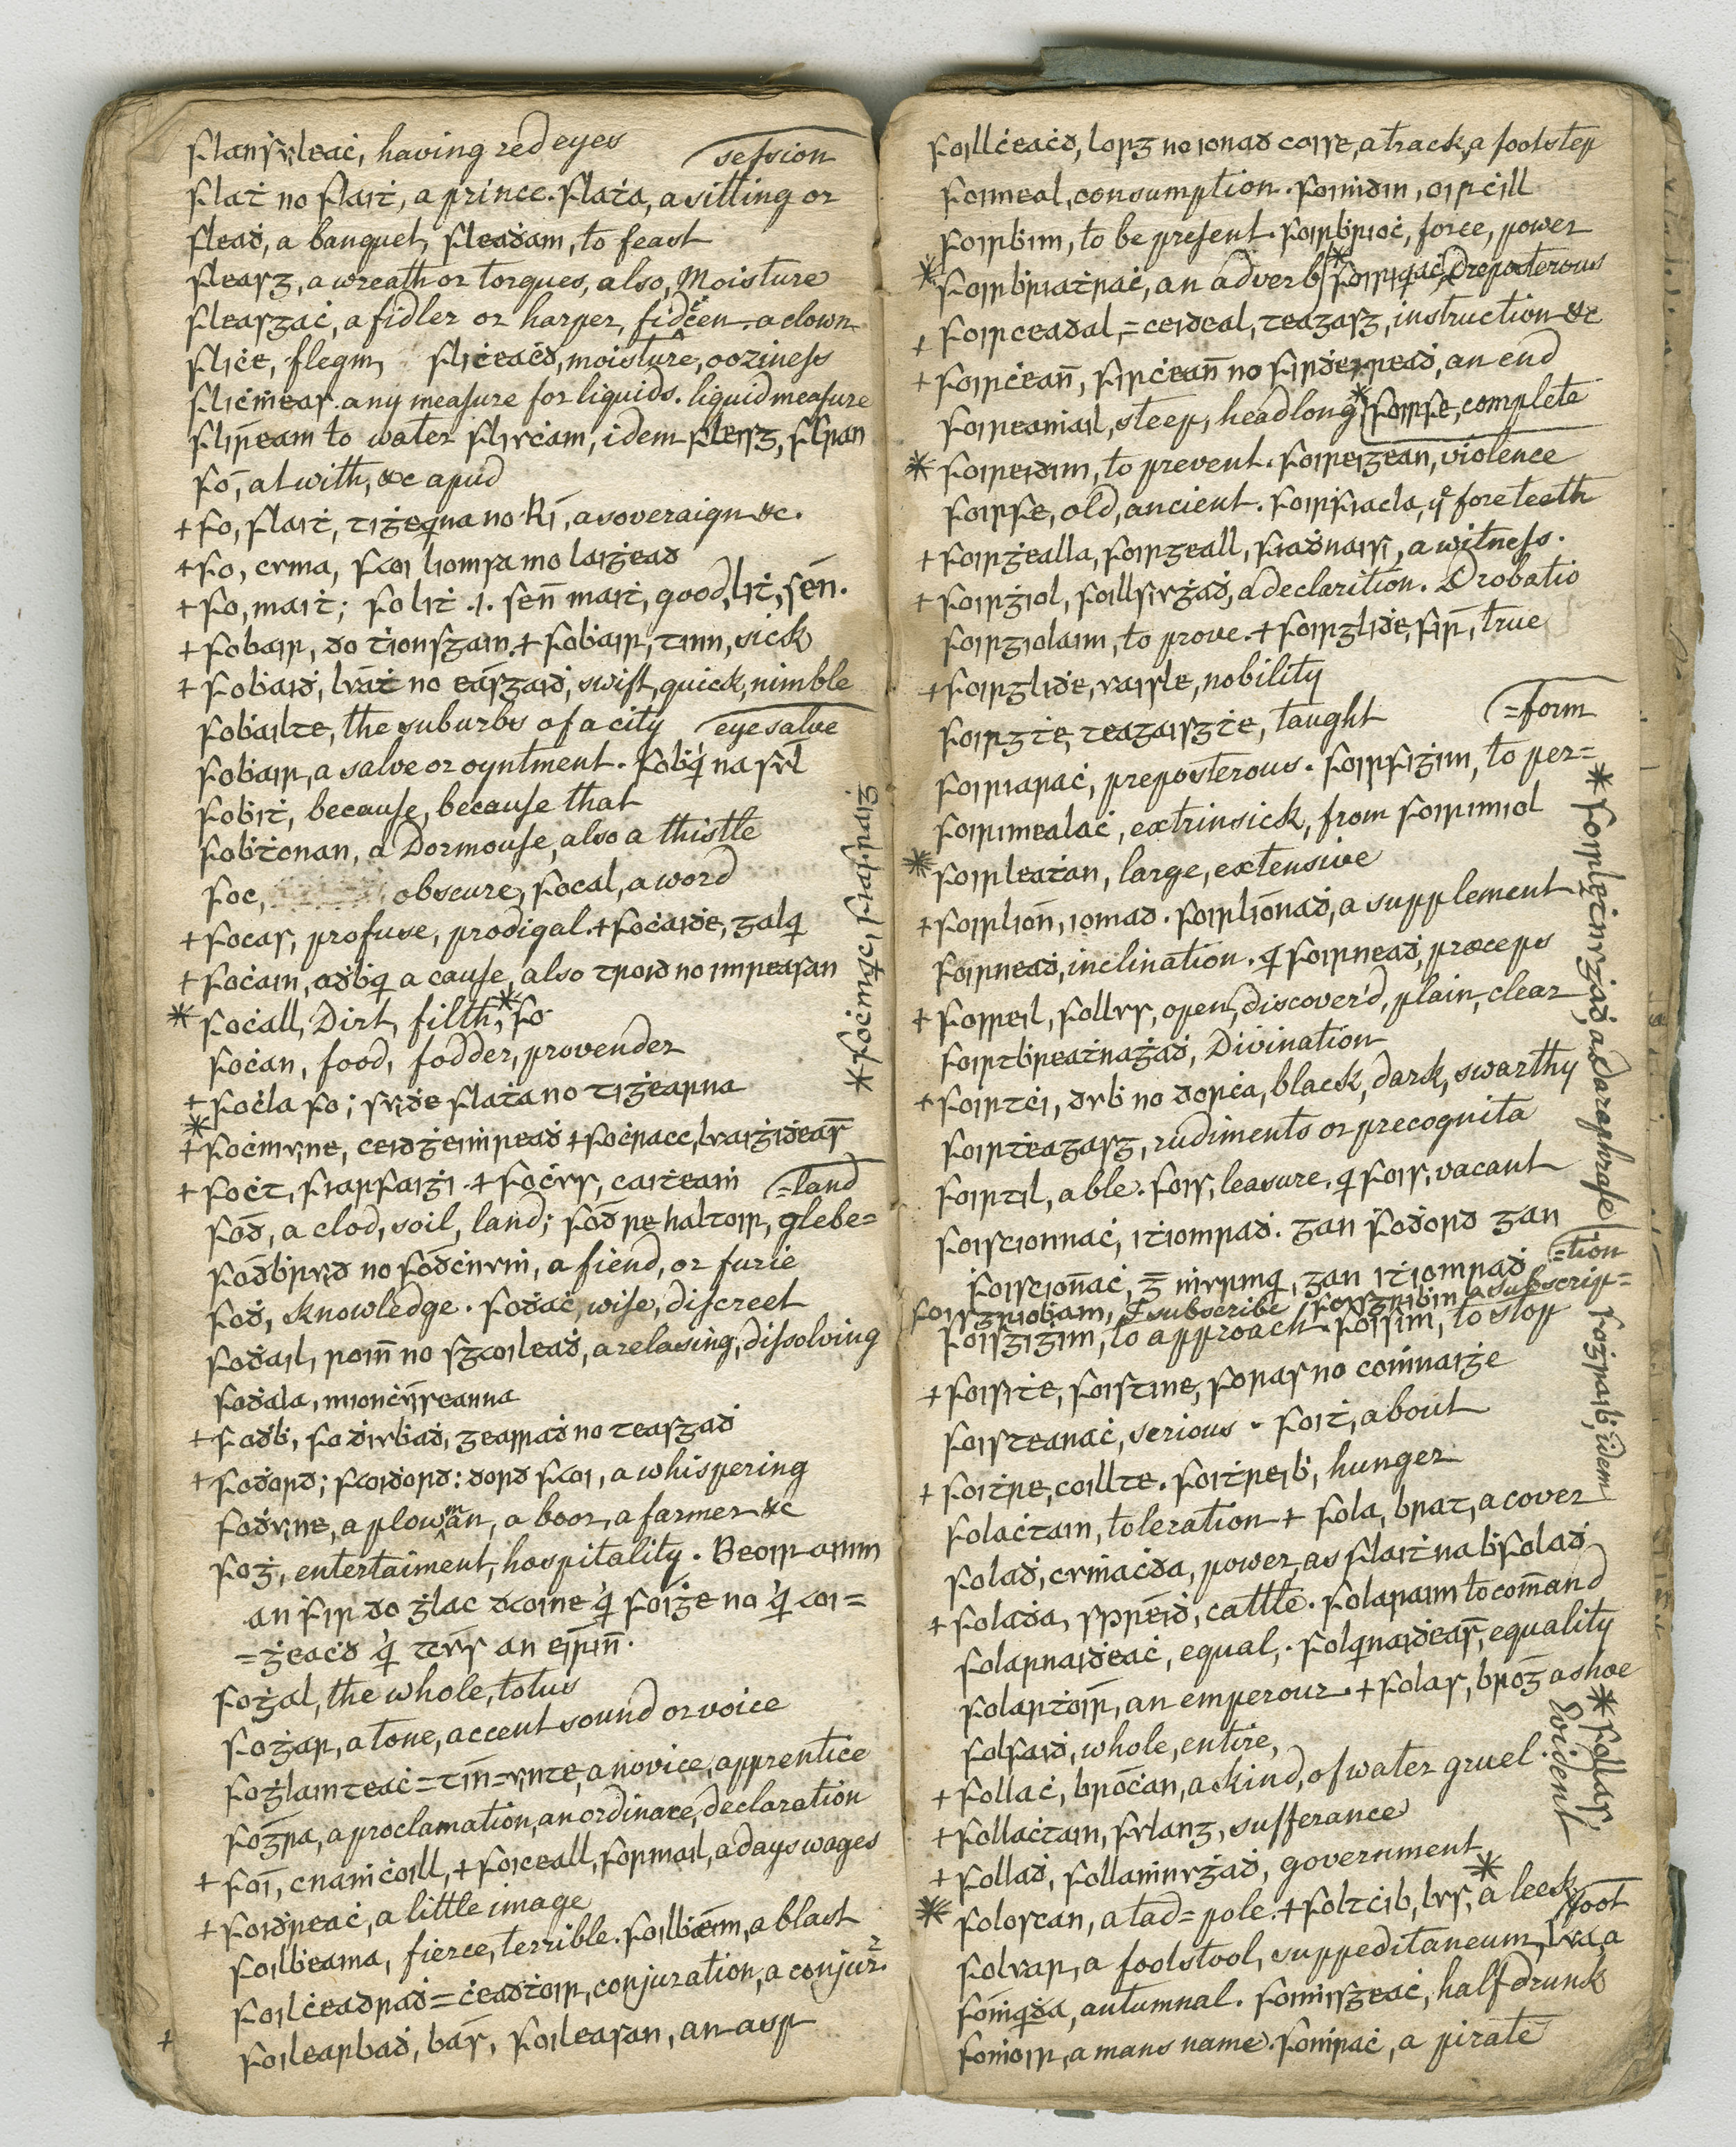 Flannṡuileaċ, having red eyes
session
Flaṫ no Flaiṫ, a prince. Flaṫa, a sitting or
Fleaḋ, a banquet, Fleaḋam, to feast
Fleasg, a wreath or torques, also, Moisture
Fleasgaċ, a fidler or harper, fidċen, a clown
Fliċe, flegm, Fliċeaċd, moisture, ooziness
Fliċṁeas any measure for liquids. liquid measure
to water Flisċam, idem Fleisg,
Fó, at with, &c apud
+Fo, Flaiṫ, tiġeꝛna no Rí, a soveraign &c.
+Fo, cuma, liomsa mo laiġead
+Fo, maiṫ; Fo liṫ .i. sén maiṫ, good, liṫ, sén.
+Fobair, do ṫionsgain. +Fobair, tinn, sick
+Fobaiḋ, luaṫ no éasgaiḋ, swift, quick, nimble
Fobailte, the suburbs of a city
eye salve
Fobair, a salve or oyntment. na súl
Fobiṫ, because, because that
Fobṫonan, a Dormouse, also a thistle
Foc, obscure, Focal, a word
+Focas, profuse, prodigal. +Foċaiḋe,
+Foċain, a cause, also troid no impeasan
*Foċall, Dirt, filth, *Fo
Foċan, food, fodder, provender
+Foċla Fo; suiḋe Flaṫa no tiġearna
*
+Foċmuine, ceidġeiṁreaḋ +Foċracc, luaiġiḋeas
+Foċt, Fiaꝛfaiġi. +Foċus, caiṫeaṁ
=land
Fód, a clod, soil, land; Fód re haltoir, glebe=
Fodbruid no a fiend, or furie
Foḋ, knowledge. Foḋaċ, wise, discreet
Foḋail, roinn no sgaoileaḋ, a relasing, dissolving
Foḋala,
+Foḋb, Fo ḋiubaḋ, gearraḋ no teasgaḋ
+Foḋord; Faoiḋord: dord Faoi, a whispering
Foduine, a plowman, a boor, a farmer &c
Foġ, entertaiment, hospitality. Beoir ainm
an Fir do ġlac daoine aꝛ Foiġe no aꝛ aoi=
=ġeaċd aꝛ tús an éirinn.
Foġal, the whole, totus
Foġar, a tone, accent sound or voice
Foġlainteaċ=tin=uinte, a novice, apprentice
Fógra, a proclamation, an ordinace, declaration
+Foi, cnaiṁċoill, +Foiceall, Formail, a days wages
+Foiḋreaċ, a little image
Foilbeama, fierce, terrible. Foilbéim, a blast
Foilċeadraḋ=ċeadtoir, conjuration, a conjur.r
+ Foilearbaḋ, bás, Foileasan, an asp
Foillċeaċd, lorg no ionad coise, a track, a footstep
Foimeal, consumption. Foiṁdin, oirċill
Foirbim, to be present. Foirbrioċ, force, power
*Foirbriaṫraċ, an adverb *Foiriaꝛaċ, Preposterous
+ Foirceadal,=ceideal, teagasg, instruction &c
+ Foirċeann, Firċeann no an end
Foireamail, steep, headlong *Foirfe, complete
*Foireidim, to prevent. Foireigean, violence
Foirfe, old, ancient. Foirfiacla, ye fore teeth
+Foirġealla, Foirgeall, Fiaḋnaisi, a witness.
+Foirġiol, Foillsiuġaḋ, a declaration. Probatio
Foirgiolaim, to prove. +Foirgliḋe, Fír, true
+Foirgliḋe, uaisle, nobility
Foirgṫe, teagaisgṫe, taught
=form
Foiriaraċ, preposterous. Foirfiġim, to per=
Foirimealaċ, extrinsick, from Foirimiol
*Foirleaṫan, large, extensive
+Foirlíon, iomad. Foirlíonaḋ, a supplement
Foirneaḋ, inclination. aꝛ Foirneaḋ, præceps
+Foirreil, Follus, open, discover'd, plain, clear
Foirtbreaṫnaġaḋ, Divination
+Foirtċi, dub no dorċa, black, dark, swarthy
Foirṫeagasg, rudiments or precognita
Foirtil, able. Fois, leasure, aꝛ Fois, vacant
Foiscionnaċ, iṫiomraḋ. gan Foḋord gan
Foiscionnaċ, gan iṫiomraḋ
=tion
Foisgriobam, I subscribe Foisgribin a subscrip=
Foisgiġim, to approach. Foisim, to stop
+Foisiṫe, Foistine, Foras no coṁnaiġe
Foisteanaċ, serious. Foiṫ, about
+Foiṫre, coillte. Foiṫreib, hunger
Folaċtain, toleration + Fola, brat, a cover
Folaḋ, cuṁaċda, power, as Flaiṫ na bFolaḋ
+Folaḋa, spréiḋ, cattle. Folaraim to command
Folarnaiḋeaċ, equal,. Folaꝛnaiḋeas, equality
Folarṫoir, an emperour. +Folas, bróg a shoe
Folfaiḋ, whole, entire,
+Follaċ, broċan, a kind, of water gruel
+Follaċtain, Fulang, sufferance
+Follaḋ, Follaṁnuġaḋ, government *
*Foloscan, a tad=pole. +Foltċib, lus, a leek
foot
Foluar, a footstool, suppeditaneum, lua, a
Foṁaꝛda, autumnal. Foṁisgeaċ, half drunk
Foṁoir, a mans name. Foṁraċ, a pirate
*Foirleiṫniuġaḋ, a Paraphrase
Foġraib, idem
*Follas,
Evident